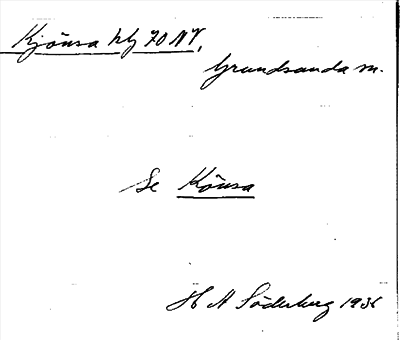 Kjönsa hg 70 NV,
Grundsunda sn.
Se Könsa
H A Söderberg 1936